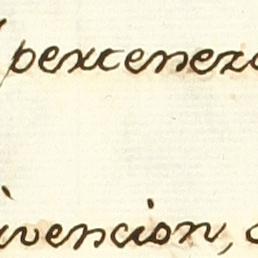 pertenez
ivencion,